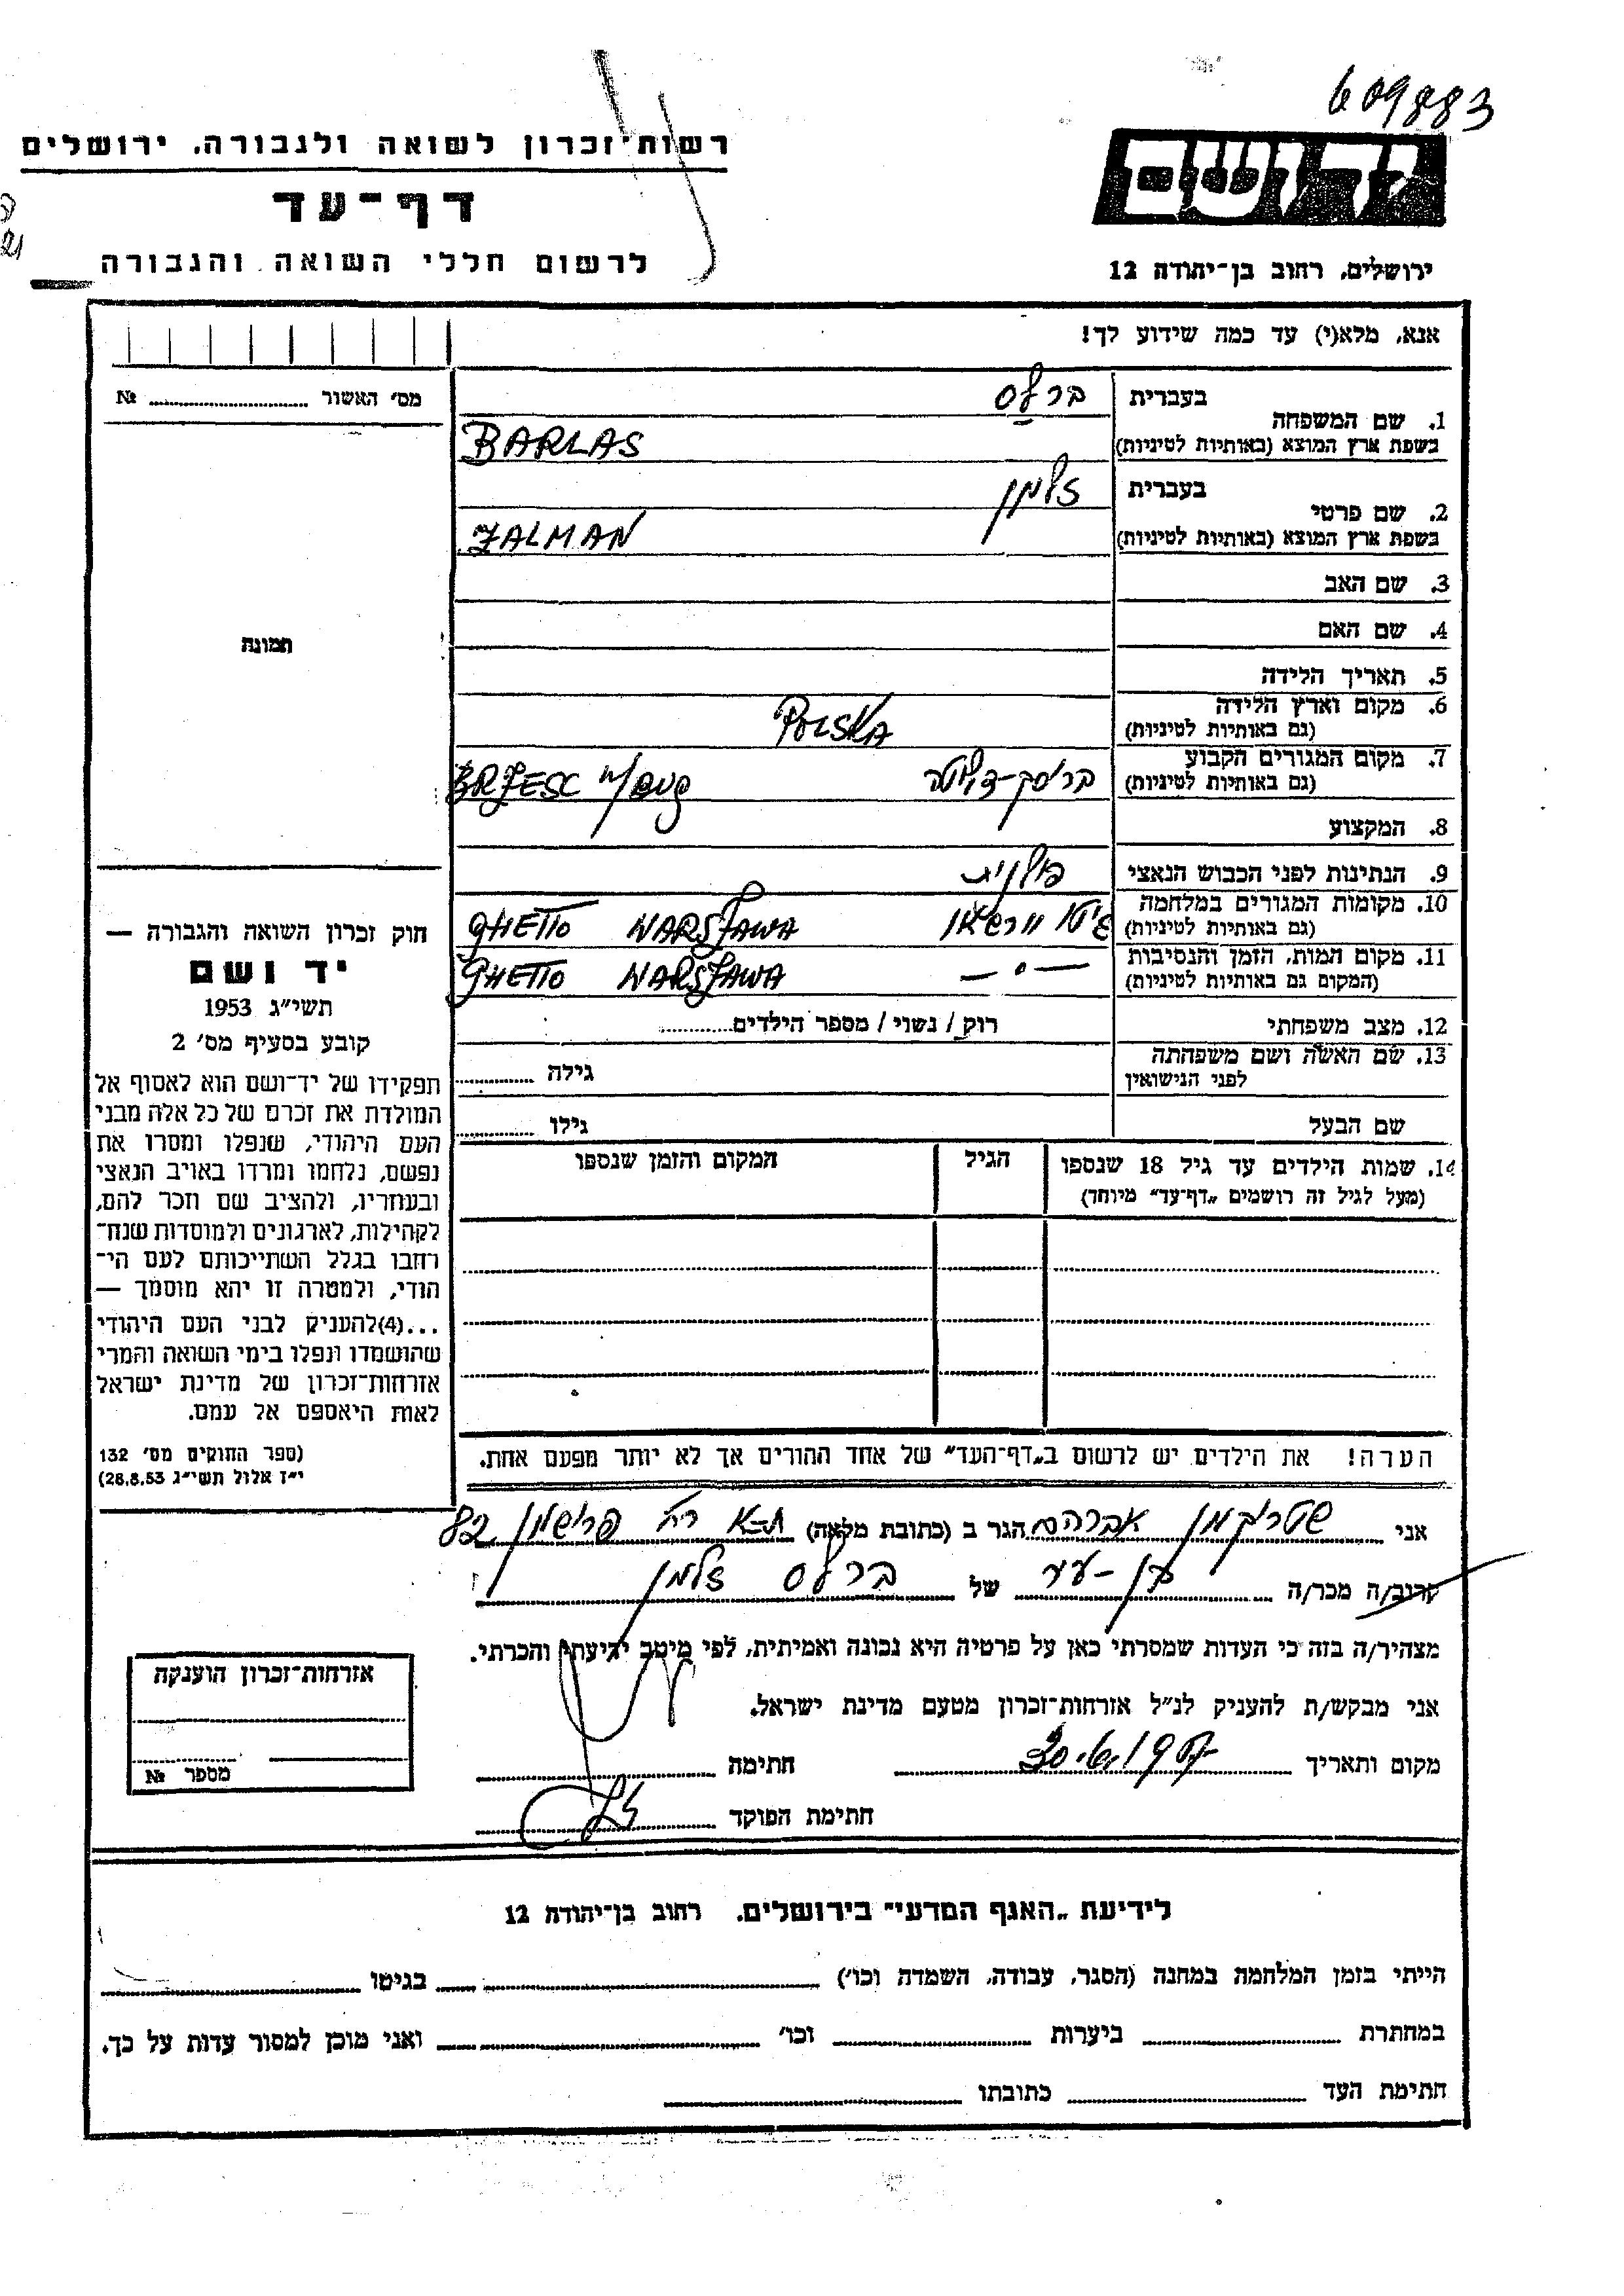 609883
רשות־זכרון לשואה ולגבורה, ירושלים
דף־עד
לרשום חללי השואה והגבורה
יד ושם
ירושלים, רחוב בן־יהודה 12
אנא, מלא(י) עד כמה שידוע לך!
מס׳ האשור № 
1. שם המשפחה בעברית ברלס
בשפת ארץ המוצא (באותיות לטיניות) BARLAS
2. שם פרטי בעברית זלמן
בשפת ארץ המוצא (באותיות לטיניות) ZALMAN
3. שם האב
4. שם האם
5. תאריך הלידה
6. מקום וארץ הלידה
(גם באותיות לטיניות) POLSKA
7. מקום המגורים הקבוע
(גם באותיות לטיניות) בריסק-דליטה BRZESC n/BUG
8. המקצוע
9. הנתינות לפני הכבוש הנאצי פולנית
10. מקומות המגורים במלחמה
(גם באותיות לטיניות) גיטו וורשאו GHETTO WARSZAWA
11. מקום המות, הזמן והנסיבות
(המקום גם באותיות לטיניות) —״— GHETTO WARSZAWA
12. מצב משפחתי רוק / נשוי / מספר הילדים
13. שם האשה ושם משפחתה
לפני הנישואין גילה
שם הבעל גילו
14. שמות הילדים עד גיל 18 שנספו הגיל המקום והזמן שנספו
(מעל לגיל זה רושמים „דף־עד״ מיוחד)
הערה! את הילדים יש לרשום ב„דף־העד״ של אחד ההורים אך לא יותר מפעם אחת.
תמונה
חוק זכרון השואה והגבורה —
יד ושם
תשי״ג 1953
קובע בסעיף מס׳ 2
תפקידו של יד־ושם הוא לאסוף אל
המולדת את זכרם של כל אלה מבני
העם היהודי, שנפלו ומסרו את
נפשם, נלחמו ומרדו באויב הנאצי
ובעוזריו, ולהציב שם וזכר להם,
לקהילות, לארגונים ולמוסדות שנח־
רחבו בגלל השתייכותם לעם הי־
הודי, ולמטרה זו יהא מוסמך —
...(4)להעניק לבני העם היהודי
שהושמדו ונפלו בימי השואה והמרי
אזרחות־זכרון של מדינת ישראל
לאות היאספם אל עמם.
(ספר החוקים מס׳ 132
י״ז אלול תשי״ג 28.8.53)
אני שטריקמן אברהם הגר ב (כתובת מלאה) ת-א רח׳ פרישמן 82
קרוב/ה מכר/ה בן-עיר של ברלס זלמן
מצהיר/ה בזה כי העדות שמסרתי כאן על פרטיה היא נכונה ואמיתית, לפי מיטב ידיעתי והכרתי.
אני מבקש/ת להעניק לנ״ל אזרחות־זכרון מטעם מדינת ישראל.
מקום ותאריך חתימה
חתימת הפוקד
אזרחות־זכרון הוענקה
מספר №
לידיעת „האגף המדעי״ בירושלים, רחוב בן־יהודה 12
הייתי בזמן המלחמה במחנה (הסגר, עבודה, השמדה וכו׳) בגיטו
במחתרת ביערות וכו׳ ואני מוכן למסור עדות על כך.
חתימת העד כתובתו